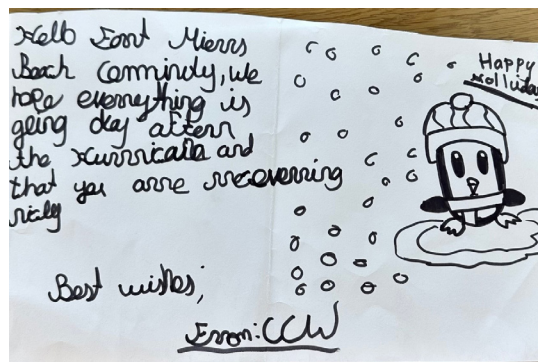 Hello Fort Miers
Beach Commindy, we
hope everything is
going okay aftern
the Hurricane and
that you are recoverring
nicely
Best wishes,
From: CCW
Happy
Holliday